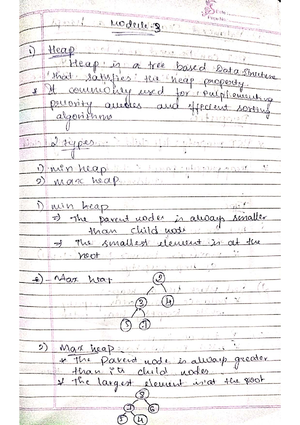 Module-3
1) Heap
Heap is a tree based Data structure
that satisfies the heap property
* It commonly used for implementing
priority queues and effecient sorting
algorithms
2 types
1) min heap
2) max heap
1) min heap
⇒ The parent nodes is always smaller
than child node
⇒ The smallest element is at the
root
Max heap
2
3 4
2) Max heap
* The parent node is always greater
than its child nodes
* The largest element is at the root
8